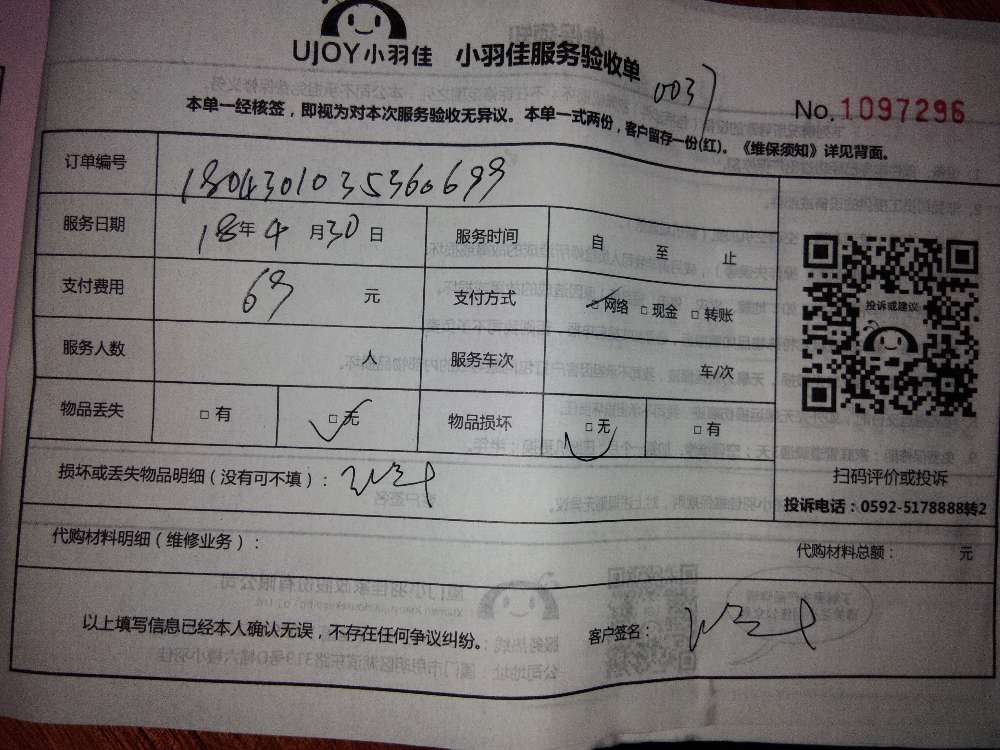 UJOY小羽佳 小羽佳服务验收单
0037
No.1097296
本单一经核签，即视为对本次服务验收无异议。本单一式两份，客户留存一份(红)。《维保须知》详见背面。
订单编号 1804301035360699
服务日期 18年4月30日 服务时间 自 至 止
支付费用 69 元 支付方式 □网络 □现金 □转账
投诉或建议
服务人数 人 服务车次 车/次
物品丢失 □有 □无 物品损坏 □无 □有
扫码评价或投诉
损坏或丢失物品明细（没有可不填）：
投诉电话：0592-5178888转2
代购材料明细（维修业务）： 代购材料总额： 元
以上填写信息已经本人确认无误，不存在任何争议纠纷。 客户签名：